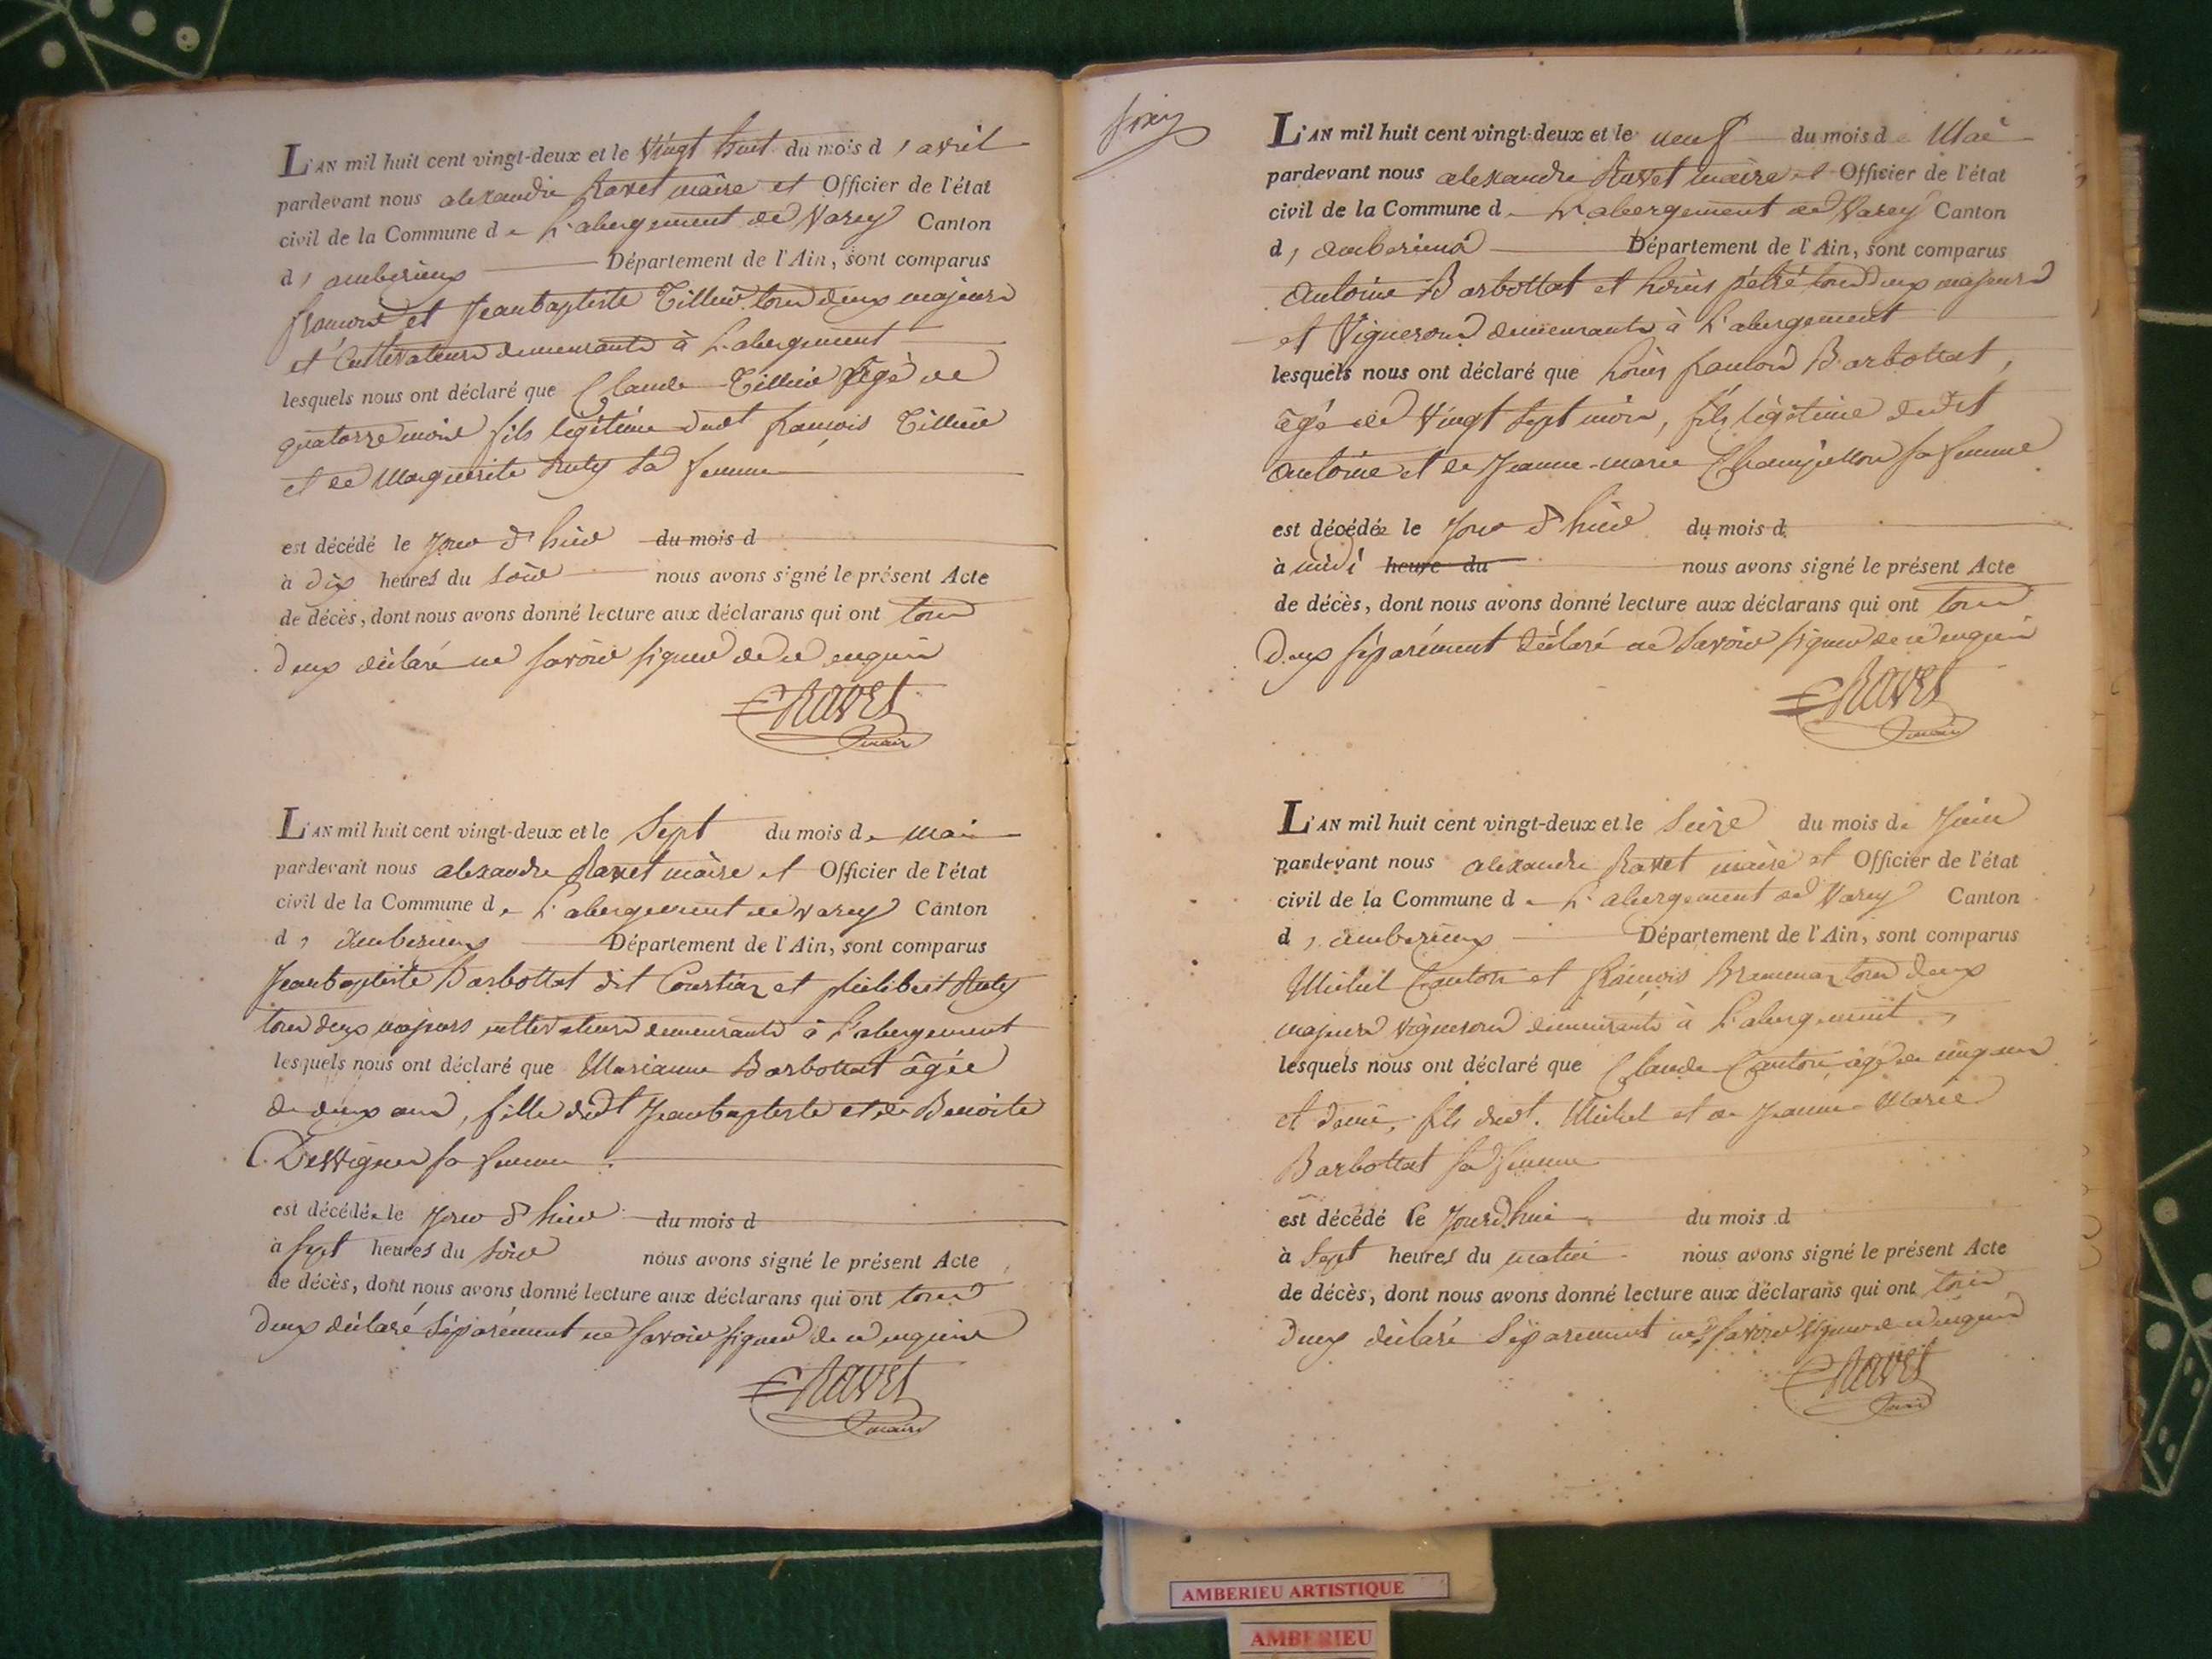 L'AN mil huit cent vingt-deux et le Vingt huit du mois d'avril
pardevant nous alexandre Ravet maire et Officier de l'état
civil de la Commune de L'abergement de Varey Canton
d'amberieux Département de l'Ain, sont comparus
françois et Jeanbaptiste Tillier tous deux majeurs
et Cultivateurs demeurants à L'abergement
lesquels nous ont déclaré que Claude Tillier âgé de
quatorze mois fils légitime dudt françois Tillier
et de Marguerite Ruty sa femme
est décédé le Jour d'hier du mois d
à dix heures du soir nous avons signé le présent Acte
de décès, dont nous avons donné lecture aux déclarans qui ont tous
deux déclaré ne savoir signer de ce enquis
Ravet
maire
L'AN mil huit cent vingt-deux et le Sept du mois de mai
pardevant nous alexandre Ravet maire et Officier de l'état
civil de la Commune de L'abergement de Varey Canton
d'amberieux Département de l'Ain, sont comparus
Jeanbaptiste Barbottat dit Courtiaz et philibert Ruty
tous deux majeurs cultivateurs demeurants à L'abergement
lesquels nous ont déclaré que Marianne Barbottat âgée
de deux ans, fille dudt Jeanbaptiste et de Benoite
sa femme
est décédée le Jour d'hier du mois d
à sept heures du soir nous avons signé le présent Acte
de décès, dont nous avons donné lecture aux déclarans qui ont tous
deux déclaré séparément ne savoir signer de ce enquis
Ravet
maire
L'AN mil huit cent vingt-deux et le neuf du mois de Mai
pardevant nous alexandre Ravet maire et Officier de l'état
civil de la Commune de L'abergement de Varey Canton
d'amberieux Département de l'Ain, sont comparus
Antoine Barbottat et Louis pétré tous deux majeurs
et Vignerons demeurants à L'abergement
lesquels nous ont déclaré que Louis françois Barbottat,
âgé de Vingt Sept mois, fils légitime dudit
Antoine et de Jeanne-marie sa femme
est décédé le Jour d'hier du mois d
à midi heure du nous avons signé le présent Acte
de décès, dont nous avons donné lecture aux déclarans qui ont tous
deux séparément déclaré ne savoir signer de ce enquis
Ravet
maire
L'AN mil huit cent vingt-deux et le Seize du mois de Juin
pardevant nous alexandre Ravet maire et Officier de l'état
civil de la Commune de L'abergement de Varey Canton
d'amberieux Département de l'Ain, sont comparus
Michel Canton et françois tous deux
majeurs vignerons demeurants à L'abergement,
lesquels nous ont déclaré que Claude Canton âgé de cinq ans
et demi, fils dudt. Michel et de Jeanne Marie
Barbottat sa femme
est décédé le Jourd'hui du mois d
à Sept heures du matin nous avons signé le présent Acte
de décès, dont nous avons donné lecture aux déclarans qui ont tous
deux déclaré Séparement ne savoir signer de ce enquis
Ravet
maire
AMBERIEU ARTISTIQUE
AMBERIEU